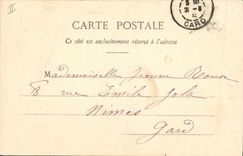 II
CARTE POSTALE
Ce côté est exclusivement réservé à l'adresse
GARD
Mademoiselle Yvonne Roux
8 rue Emile Jole
Nimes
Gard